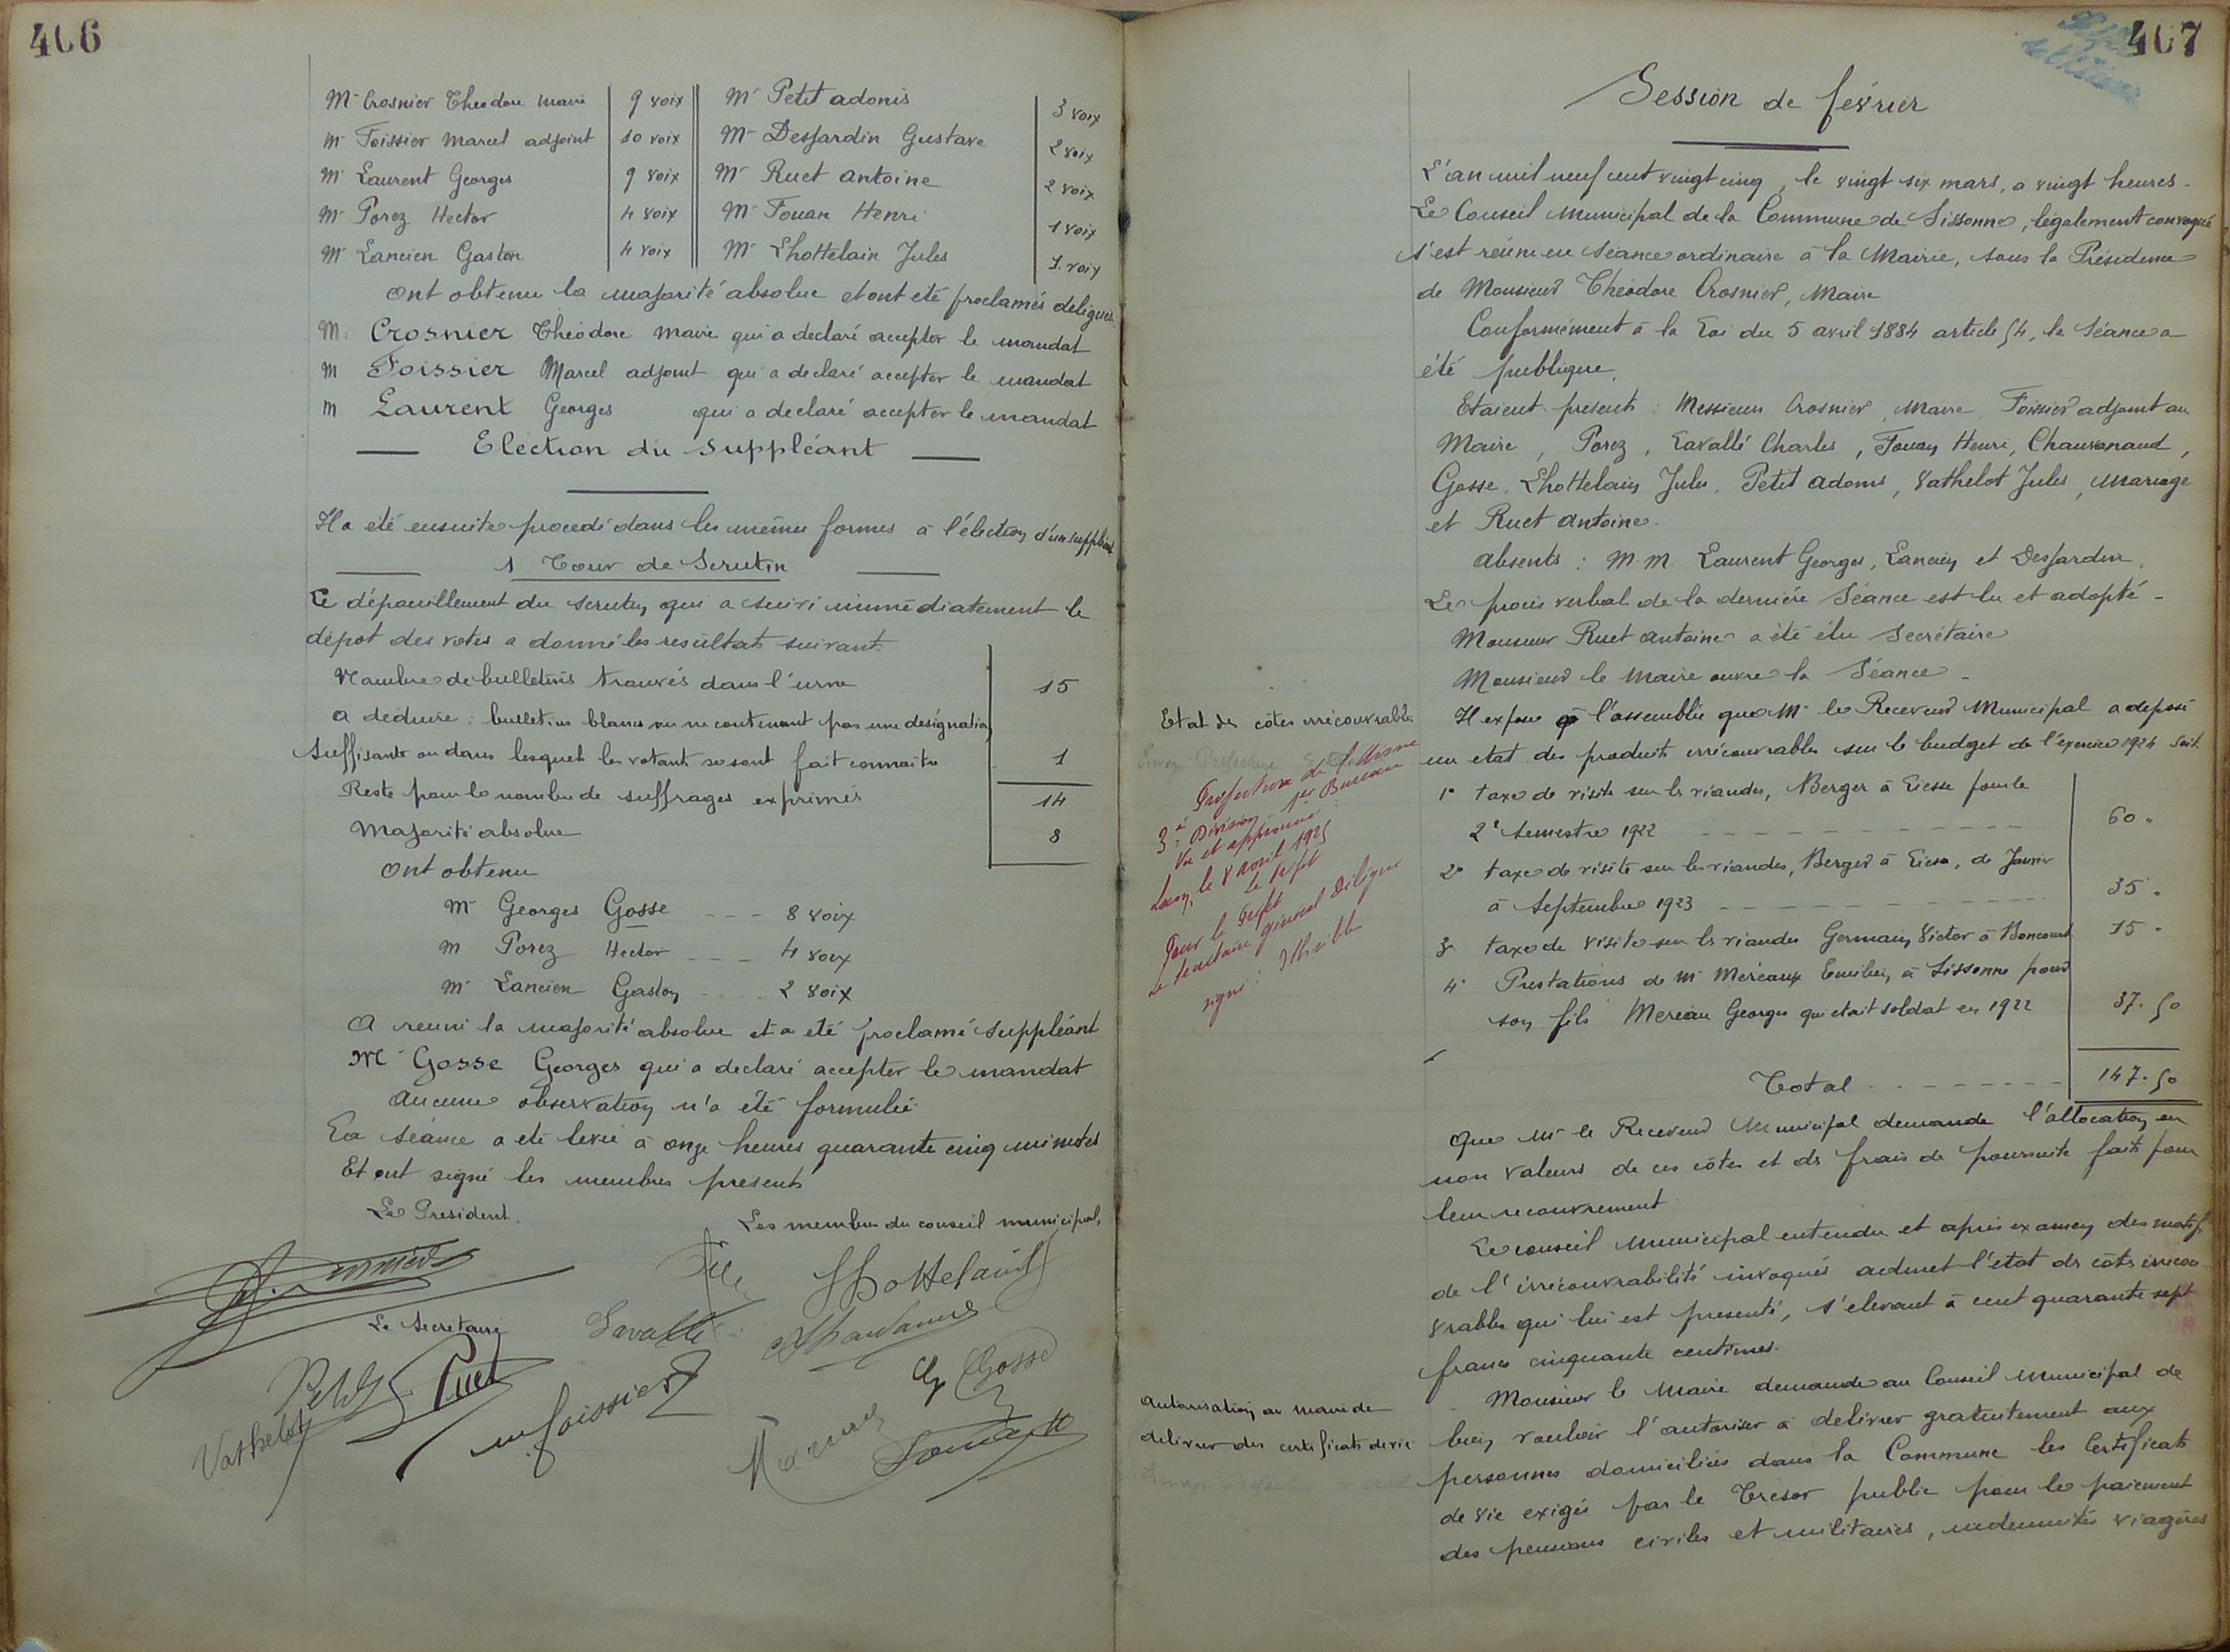 406
Mr Crosnier Théodore maire 9 voix Mr Petit adonis 3 voix
Mr Foissier Marcel adjoint 10 voix Mr Desjardin Gustave 2 voix
Mr Laurent Georges 9 voix Mr Ruet antoine 2 voix
Mr Porez Hector 4 voix Mr Fouan Henri 1 voix
Mr Lancien Gaston 4 voix Mr Lhottelain Jules 1 voix
Ont obtenu la majorité absolue et ont été proclamés délégués
M. Crosnier Théodore maire qui a déclaré accepter le mandat
M Foissier Marcel adjoint qui a declaré accepter le mandat
M Laurent Georges qui a declaré accepter le mandat
Election du Suppléant
Il a été ensuite procedé dans les mêmes formes à l'élection d'un suppléant
1 Tour de Scrutin
Le dépouillement du scrutin qui a suivi immédiatement le
dépot des votes a donné les resultats suivants
Nombre de bulletins trouvés dans l'urne 15
a déduire : bulletins blancs ou ne contenant pas une désignation
suffisante ou dans lesquels les votants se sont fait connaitre 1
Reste pour le nombre de suffrages exprimés 14
Majorité absolue 8
Ont obtenu
Mr Georges Gosse - - - 8 voix
M Porez Hector - - - 4 voix
Mr Lancien Gaston - - - 2 voix
A reuni la majorité absolue et a été proclamé Suppléant
Mr Gosse Georges qui a déclaré accepter le mandat
Aucune observation n'a été formulée
La séance a été levée à onze heures quarante cinq minutes
Et ont signé les membres présents
Le Président.
Les membres du conseil municipal,
Lhottelain
Le Secrétaire
Lavallé
Petit Ruet
G Gosse
Vathelot
m foissier
407
Session de février
L'an mil neuf cent vingt cinq, le vingt six mars, à vingt heures -
Le Conseil Municipal de la Commune de Sissonne, légalement convoqué
s'est réuni en séance ordinaire à la Mairie, sous la Présidence
de Monsieur Théodore Crosnier, Maire
Conformément à la Loi du 5 avril 1884 article 54, la Séance a
été publique.
Etaient présents : Messieurs Crosnier, Maire, Foissier adjoint au
Maire, Porez, Lavallé Charles, Fouan Henri, Chauvanaud,
Gosse, Lhottelain Jules, Petit adonis, Vathelot Jules, Mariage
et Ruet antoine.
absents : M.M. Laurent Georges, Lancien et Desjardin.
Le procès verbal de la dernière Séance est lu et adopté -
Monsieur Ruet antoine a été élu Secrétaire
Monsieur le Maire ouvre la Séance -
Etat des côtes irrécouvrables
Préfecture de l'Aisne
3e Division 1er Bureau
Vu et approuvé :
Laon, le 8 avril 1925
Le Préfet
Pour le Préfet
Le secrétaire général Délégué
signé : Illisible
Il expose à l'assemblée que Mr le Receveur Municipal a déposé
un etat des produits irrécouvrables sur le budget de l'exercice 1924 soit.
1° taxe de visite sur les viandes, Berger à Liesse pour le
2e semestre 1922 - - - 60 "
2° taxe de visite sur les viandes, Berger à Liesse, de Janvier
à Septembre 1923 - - - 35 "
3° taxe de visite sur les viandes Germain Victor à Boncourt 15 "
4° Prestations de Mr Méreaux Emilien à Sissonne pour
son fils Mereau Georges qui etait soldat en 1922 37.50
Total - - - 147.50
Que Mr le Receveur Municipal demande l'allocation en
non valeurs de ces côtes et des frais de poursuite faits pour
leur recouvrement
Le conseil Municipal entendu et après examen des motifs
de l'irrécouvrabilité invoqués admet l'état des côtes irrécou-
vrables qui lui est présenté, s'élevant à cent quarante sept
francs cinquante centimes.
Autorisation au maire de
délivrer des certificats de vie
Monsieur le Maire demande au Conseil Municipal de
bien vouloir l'autoriser à délivrer gratuitement aux
personnes domiciliées dans la Commune les Certificats
de vie exigés par le Trésor public pour le paiement
des pensions civiles et militaires, indemnités viagères